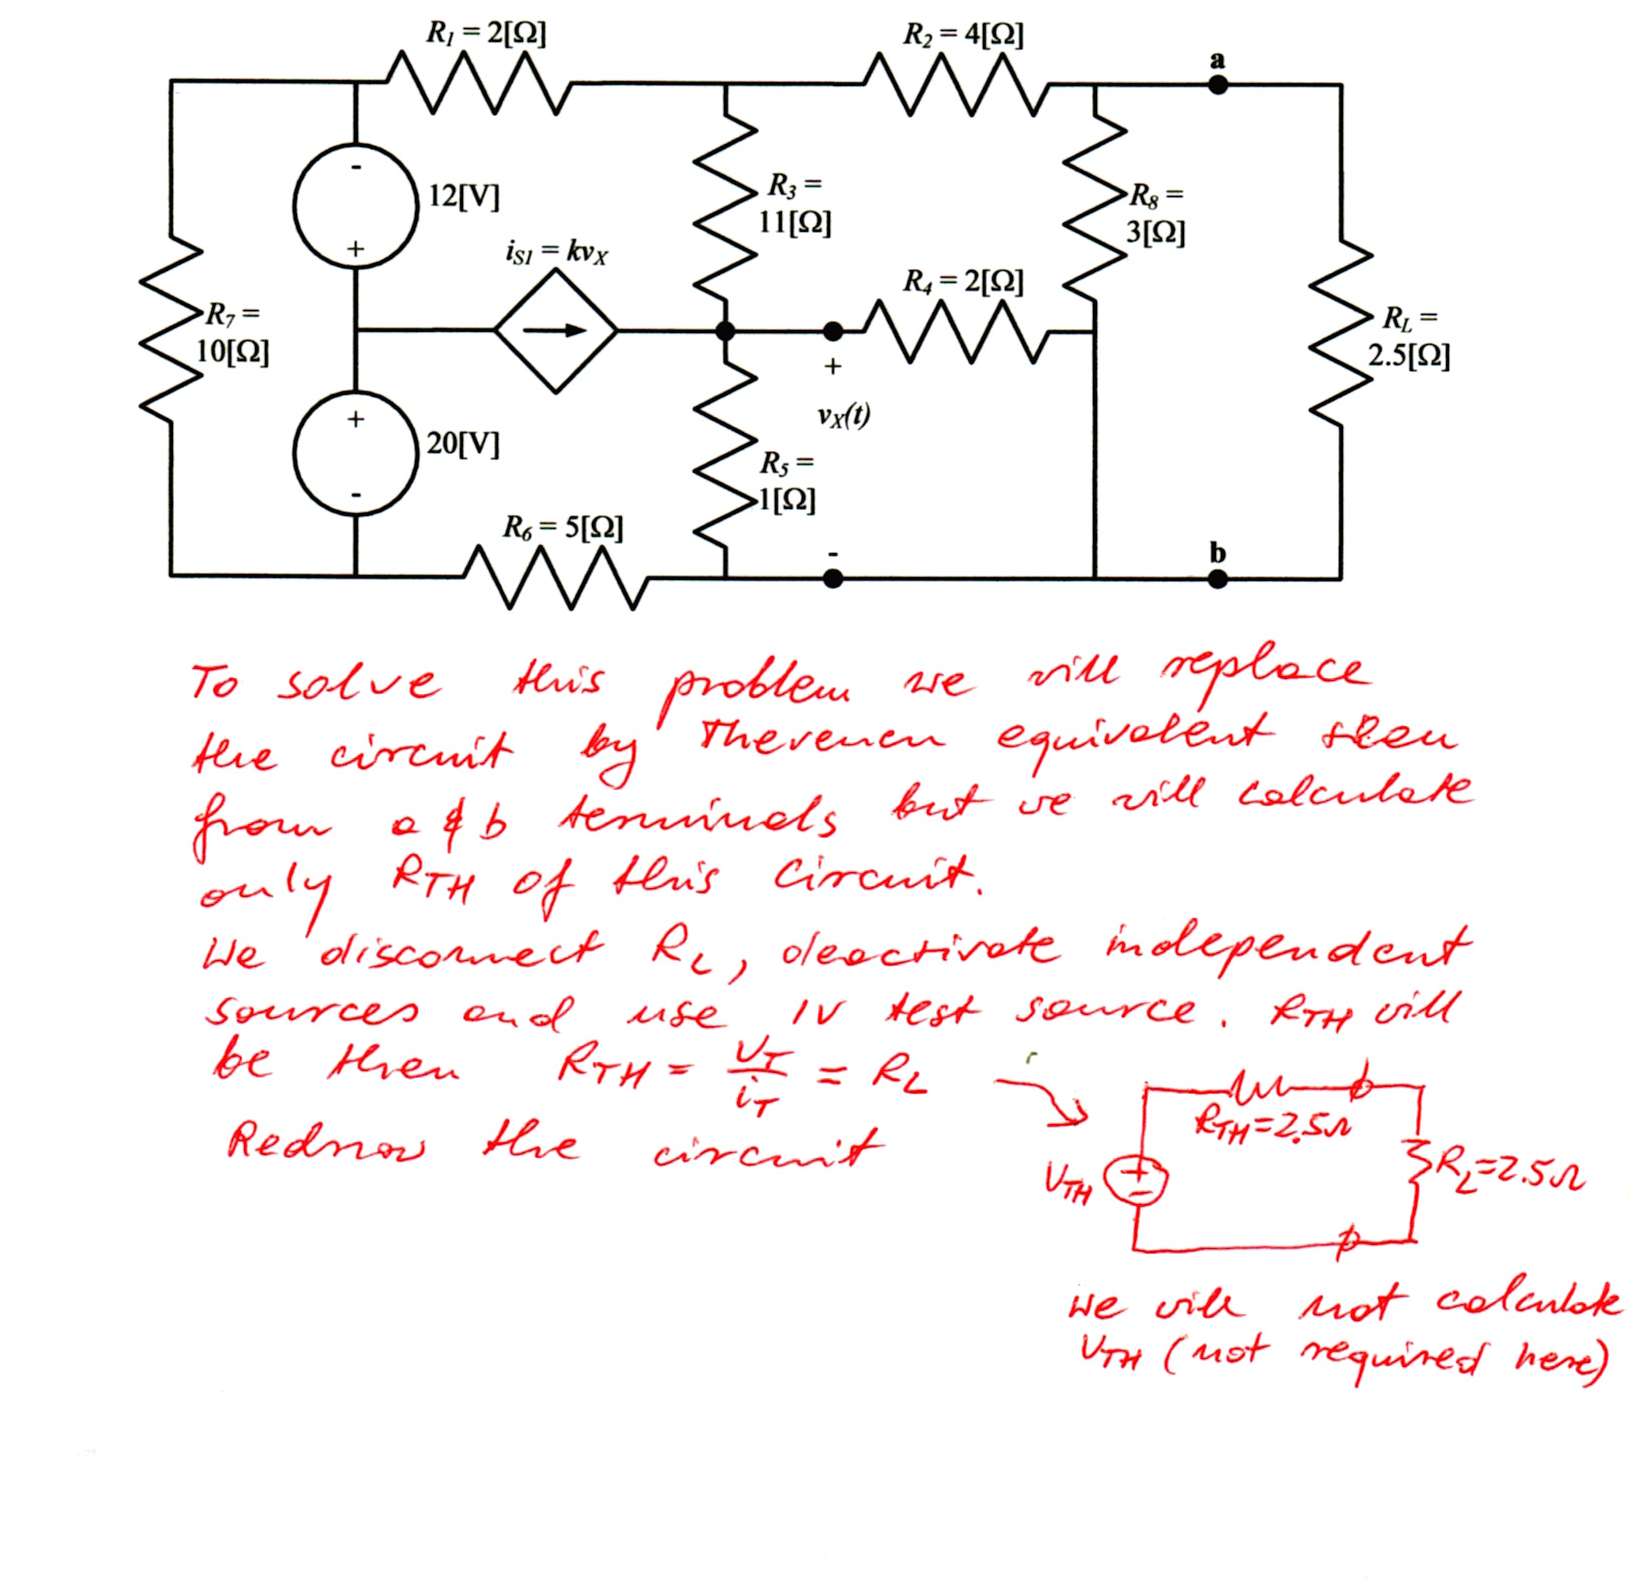 R1 = 2[Ω]
R2 = 4[Ω]
a
-
12[V]
+
R3 =
11[Ω]
R8 =
3[Ω]
iS1 = kvX
R4 = 2[Ω]
R7 =
10[Ω]
RL =
2.5[Ω]
+
20[V]
-
+
vX(t)
-
R5 =
1[Ω]
R6 = 5[Ω]
b
To solve this problem we will replace
the circuit by Thevenen equivalent seen
from a & b terminals but we will calculate
only RTH of this circuit.
We disconnect RL, deactivate independent
sources and use 1V test source. RTH will
be then RTH = vT/iT = RL
Redraw the circuit
RTH=2.5Ω
VTH
+
-
RL=2.5Ω
we will not calculate
VTH (not required here)